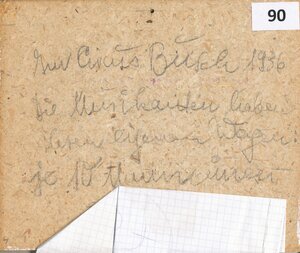 90
Im Circus Busch 1936
die Musikanten haben
ihren eigenen Wagen
je 10 Mann